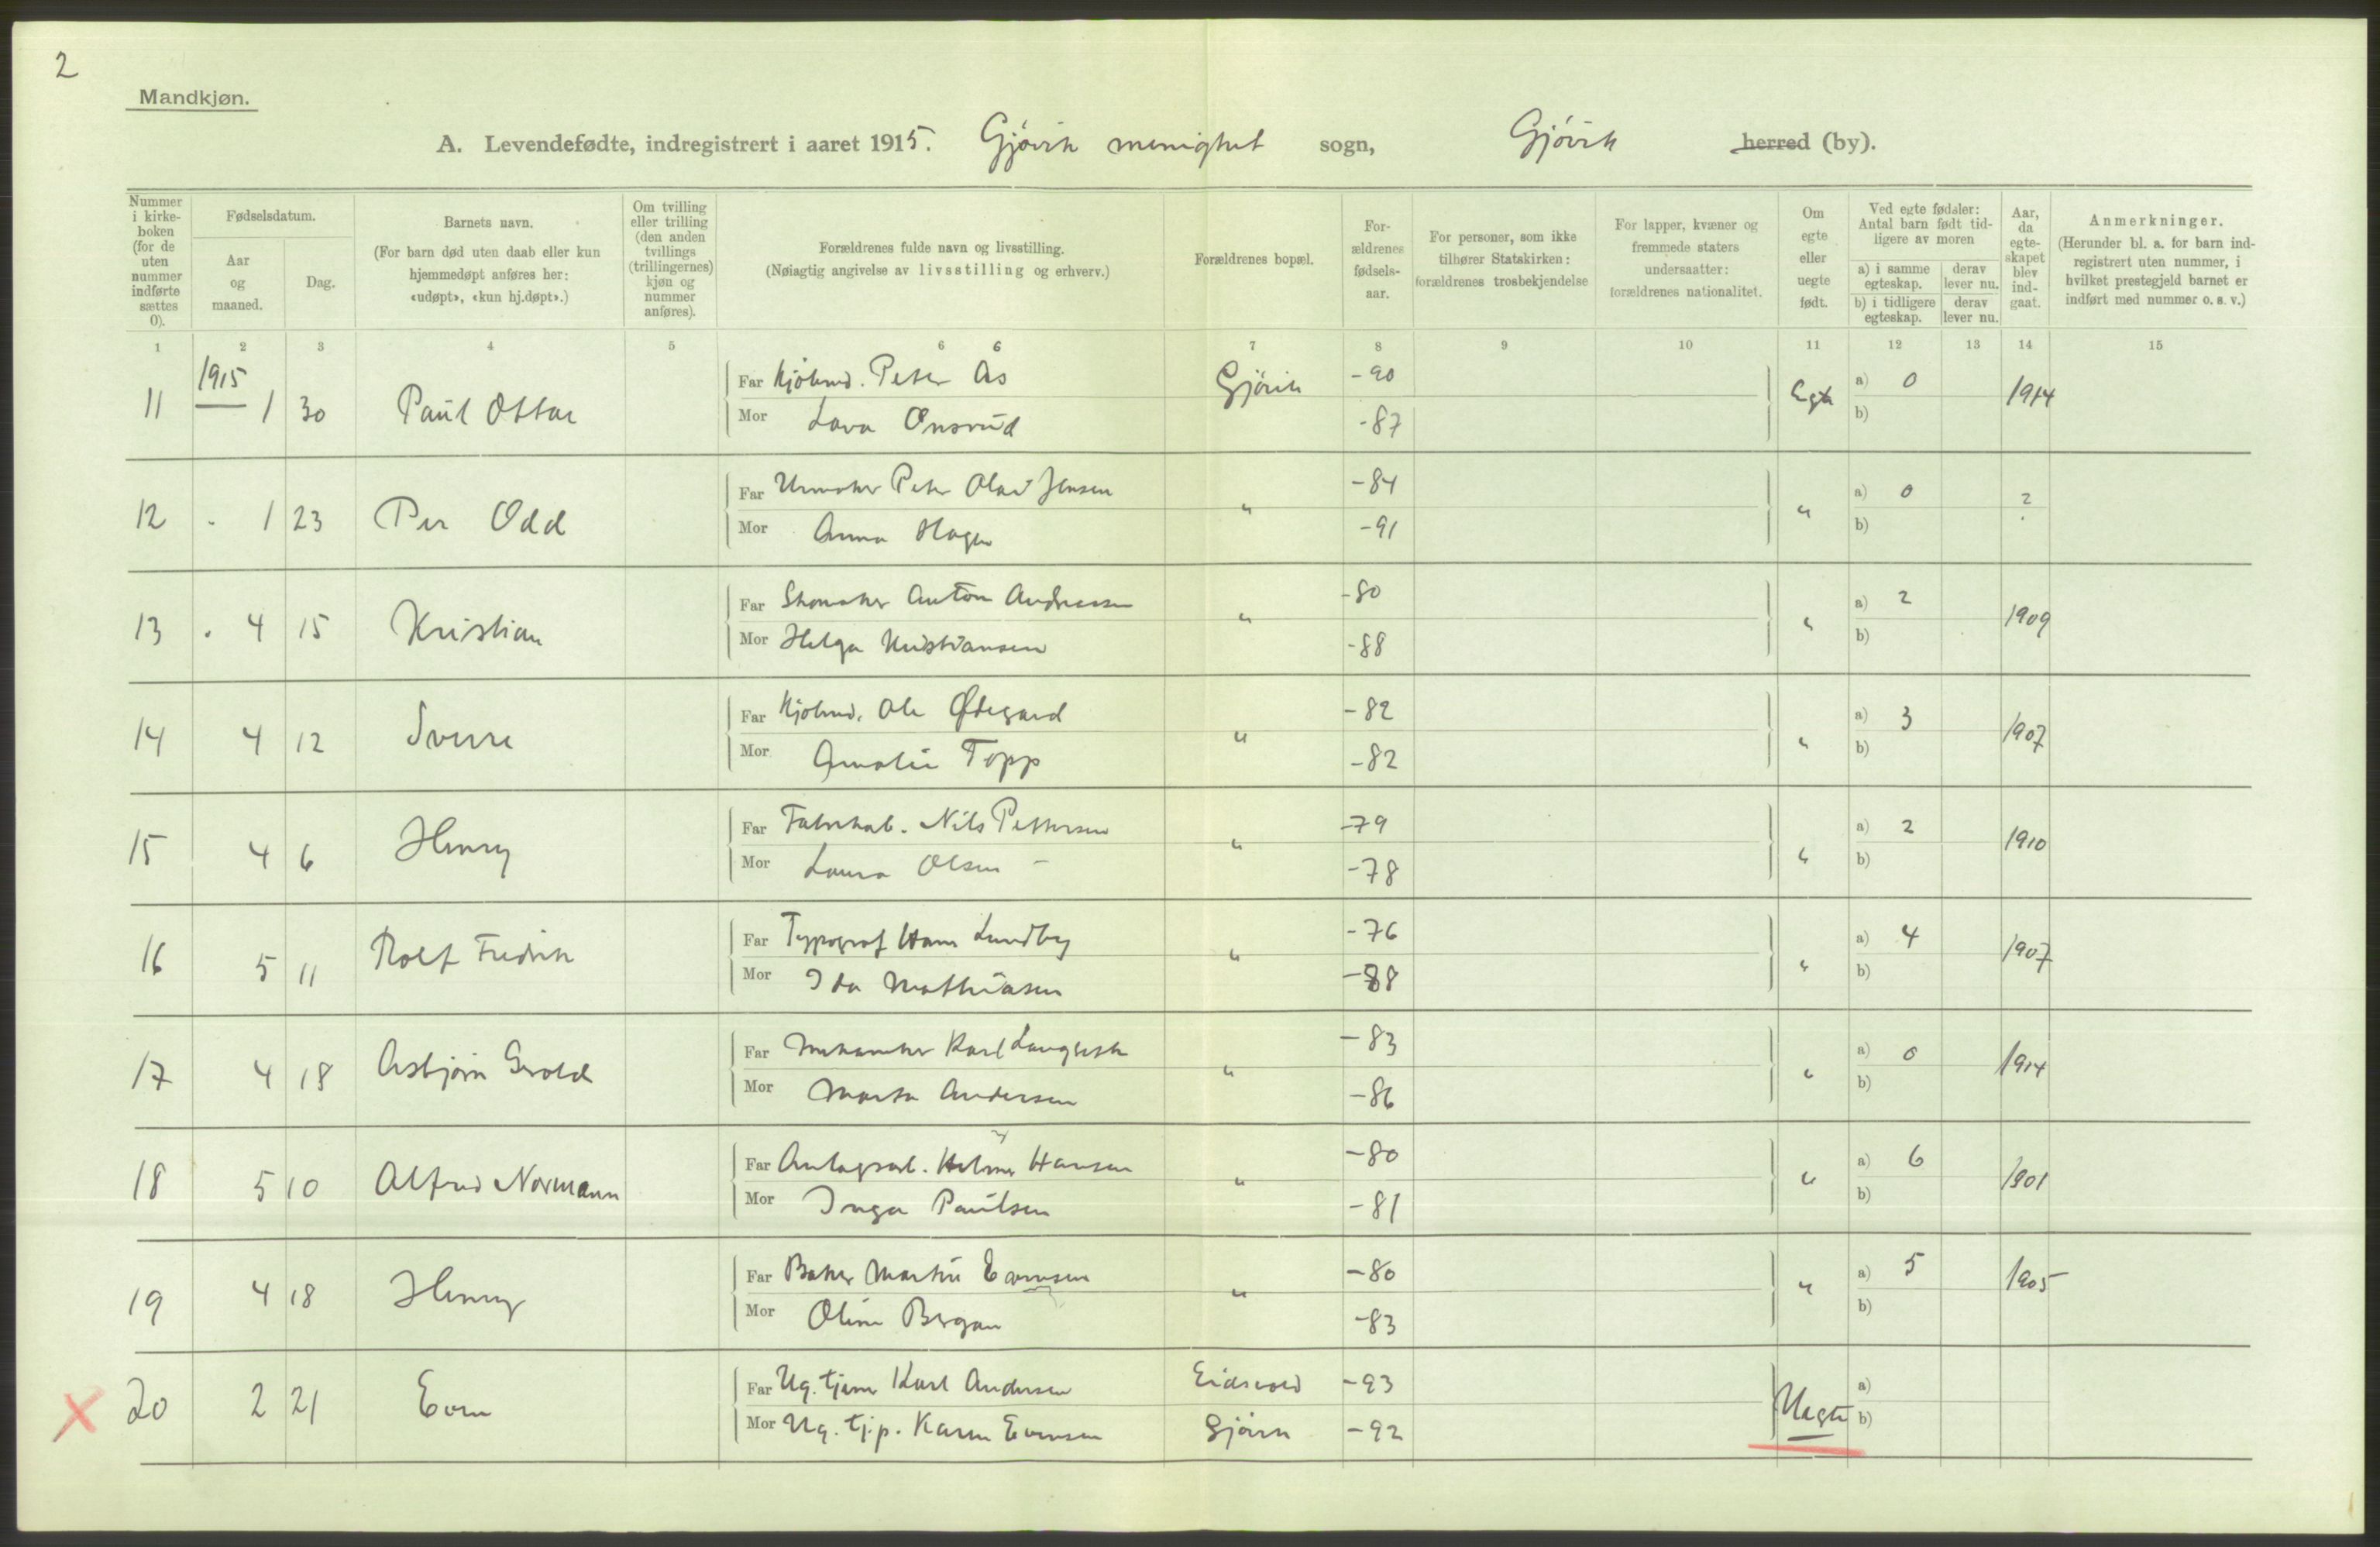 2
Mandkjøn.
A. Levendefødte, indregistrert i aaret 1915. Gjøvik menighet sogn, Gjøvik herred (by).
Nummer i kirkeboken (for de uten nummer indførte sættes 0).
Fødselsdatum.
Aar og maaned.
Dag.
Barnets navn.
(For barn død uten daab eller kun hjemmedøpt anføres her: «udøpt», «kun hj.døpt».)
Om tvilling eller trilling (den anden tvillings (trillingernes) kjøn og nummer anføres).
Forældrenes fulde navn og livsstilling.
(Nøiagtig angivelse av livsstilling og erhverv.)
Forældrenes bopæl.
Forældrenes fødselsaar.
For personer, som ikke tilhører Statskirken: forældrenes trosbekjendelse
For lapper, kvæner og fremmede staters undersaatter: forældrenes nationalitet.
Om egte eller uegte født.
Ved egte fødsler: Antal barn født tidligere av moren
a) i samme egteskap. derav lever nu.
b) i tidligere egteskap. derav lever nu.
Aar, da egteskapet blev indgaat.
Anmerkninger.
(Herunder bl. a. for barn indregistrert uten nummer, i hvilket prestegjeld barnet er indført med nummer o. s. v.)
1 2 3 4 5 6 6 7 8 9 10 11 12 13 14 15
1915
11 1 30 Paul Ottar Far Kjøbmd. Peter Ås Gjövik -90 Egte a) 0 1914
Mor Lava Onsrud -87 b)
12 " 1 23 Per Odd Far Urmaker Peter Olav Jensen " -84 " a) 0 ?
Mor Anna Hagen -91 b)
13 " 4 15 Kristian Far Skomaker Anton Andreassen " -80 " a) 2 1909
Mor Helga Kristiansen -88 b)
14 4 12 Sverre Far Kjøbmd. Ole Ødegaard " -82 " a) 3 1907
Mor Amalie Topp -82 b)
15 4 6 Henry Far Fabrikarb. Nils Pettersen " -79 " a) 2 1910
Mor Laura Olsen -78 b)
16 5 11 Rolf Fredrik Far Typograf Hans Lundby " -76 " a) 4 1907
Mor Ida Mathiasen -88 b)
17 4 18 Asbjørn Far Mekaniker Karl " -83 " a) 0 1914
Mor Marta Andersen -86 b)
18 5 10 Alfred Normann Far Anlægsarb. Helmer Hansen " -80 " a) 6 1901
Mor Inga Paulsen -81 b)
19 4 18 Henry Far Baker Martin Evensen " -80 " a) 5 1905
Mor Oline Bergan -83 b)
20 2 21 Even Far Ug. tjener Karl Andersen Eidsvold -93 Uegte a)
Mor Ug. tj.p. Karen Evensen Gjövik -92 b)